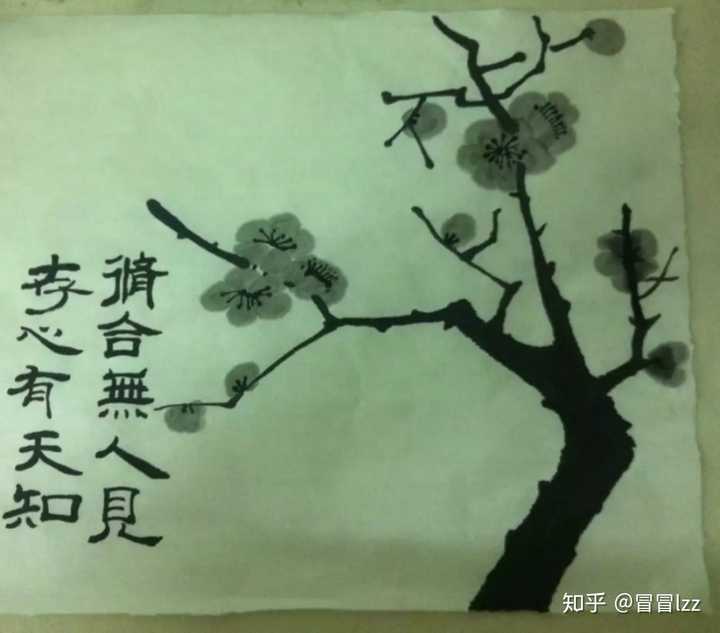 脩合無人見
存心有天知
知乎 @冒冒lzz